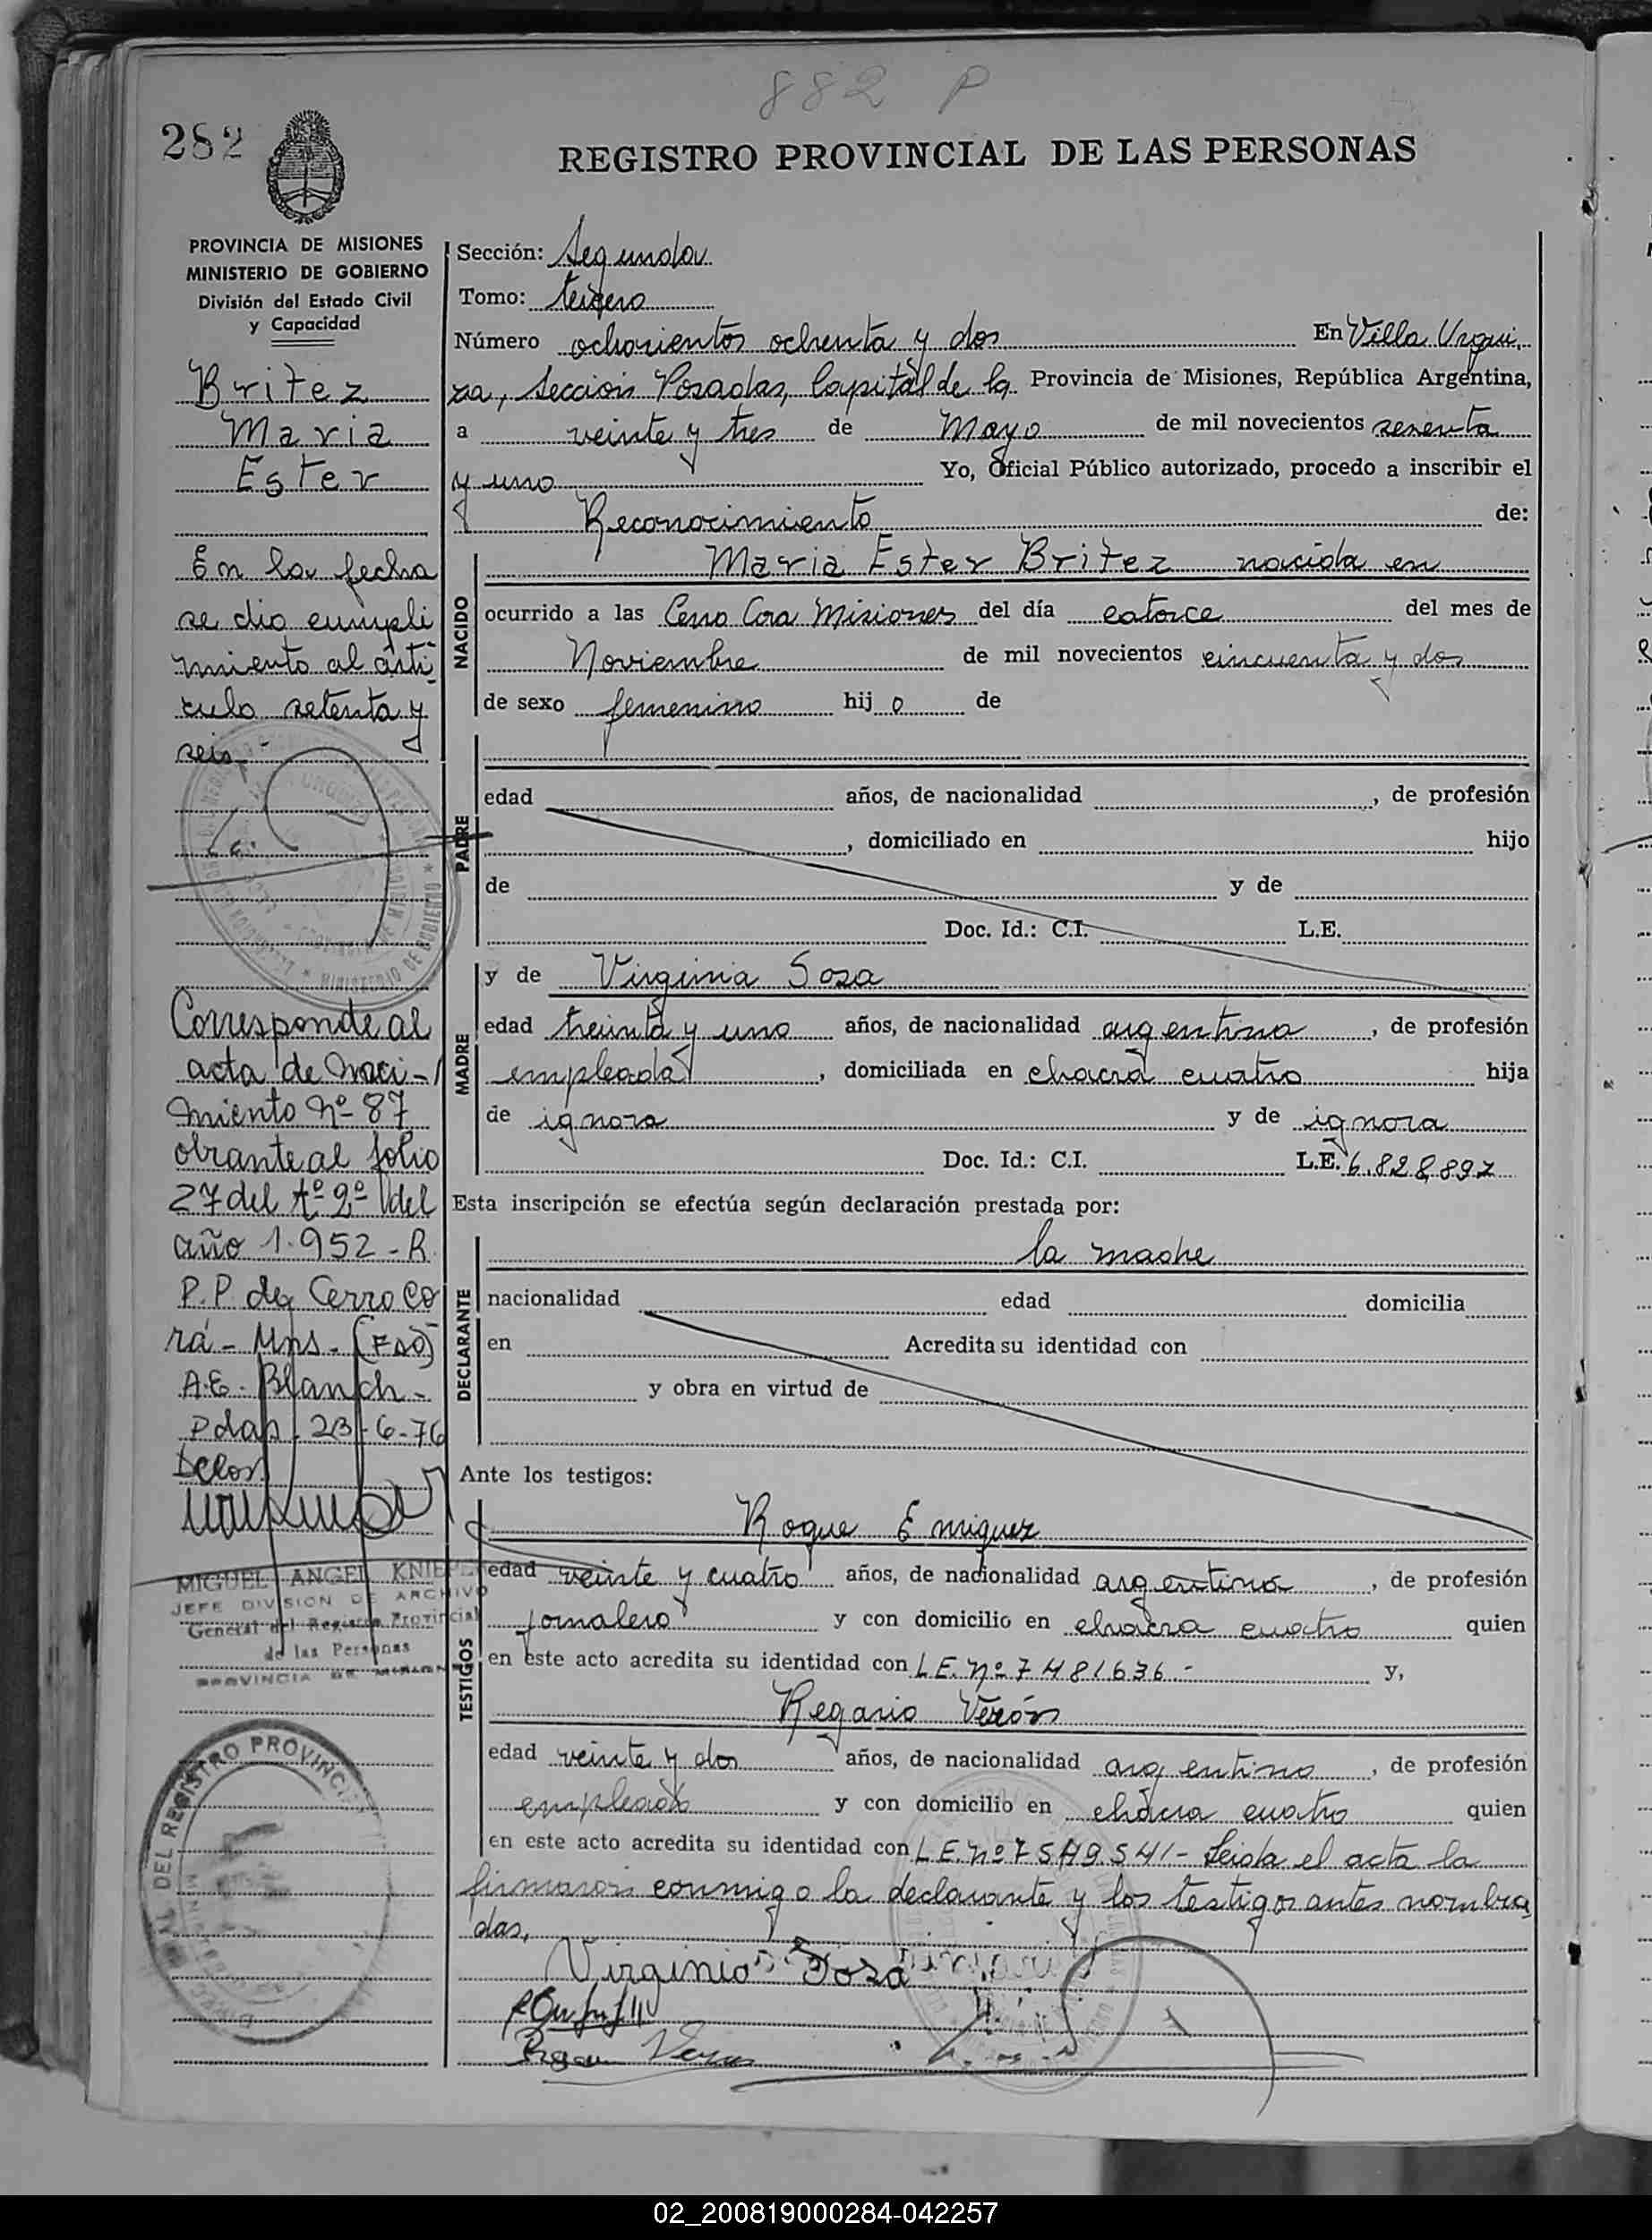 882 P
282
REGISTRO PROVINCIAL DE LAS PERSONAS
PROVINCIA DE MISIONES
MINISTERIO DE GOBIERNO
División del Estado Civil
y Capacidad
Britez
Maria
Ester
En la fecha
se dio cumpli
miento al arti
culo setenta y
seis.-
Corresponde al
acta de Naci-
miento Nº 87
obrante al folio
27 del tº 2º del
año 1.952 - R.
P.P. de Cerro Co
rá - Mns - (FDO)
A.E. Blanch -
Pdas. 23-6-76
MIGUEL ANGEL KNIE
JEFE DIVISION DE ARCHIVO
General del Registro Provincial
de las Personas
PROVINCIA DE MISIONES
DEL REGISTRO PROVINCI
Sección: Segunda
Tomo: tercero
Número ochocientos ochenta y dos En Villa Urqui.
za, Sección Posadas, Capital de la Provincia de Misiones, República Argentina,
a veinte y tres de Mayo de mil novecientos sesenta
y uno Yo, Oficial Público autorizado, procedo a inscribir el
Reconocimiento de:
NACIDO
Maria Ester Britez nacida en
ocurrido a las Cerro Cora Misiones del día catorce del mes de
Noviembre de mil novecientos cincuenta y dos
de sexo femenino hij o de
PADRE
edad años, de nacionalidad , de profesión
, domiciliado en hijo
de y de
Doc. Id.: C.I. L.E.
MADRE
y de Virginia Sosa
edad treinta y uno años, de nacionalidad argentina , de profesión
empleada , domiciliada en chacra cuatro hija
de ignora y de ignora
Doc. Id.: C.I. L.E. 6.828,897
Esta inscripción se efectúa según declaración prestada por:
DECLARANTE
la madre
nacionalidad edad domicilia
en Acredita su identidad con
y obra en virtud de
Ante los testigos:
TESTIGOS
Roque Enriquez
edad veinte y cuatro años, de nacionalidad argentina , de profesión
jornalero y con domicilio en chacra cuatro quien
en este acto acredita su identidad con L.E. Nº 7481636 - y,
Regario Verón
edad veinte y dos años, de nacionalidad argentino , de profesión
empleado y con domicilio en chacra cuatro quien
en este acto acredita su identidad con L.E. Nº 7.549.541 - Leida el acta la
firmaron conmigo la declarante y los testigos antes nombra
dos,
Virginia Sosa
02_200819000284-042257